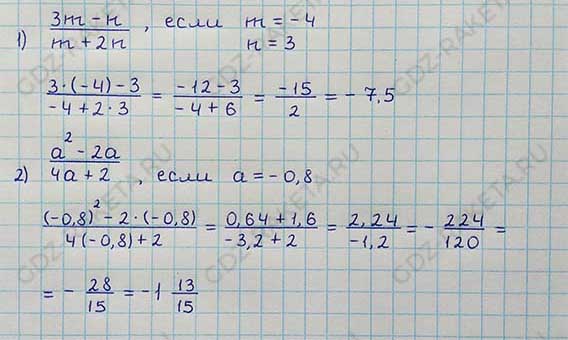 1) (3m - n)/(m + 2n), если m = -4
n = 3
(3·(-4)-3)/(-4+2·3) = (-12-3)/(-4+6) = -15/2 = -7,5
2) (a² - 2a)/(4a + 2), если a = -0,8
((-0,8)² - 2·(-0,8))/(4(-0,8)+2) = (0,64+1,6)/(-3,2+2) = 2,24/-1,2 = -224/120 =
= -28/15 = -1 13/15
GDZ-RAKETA.RU